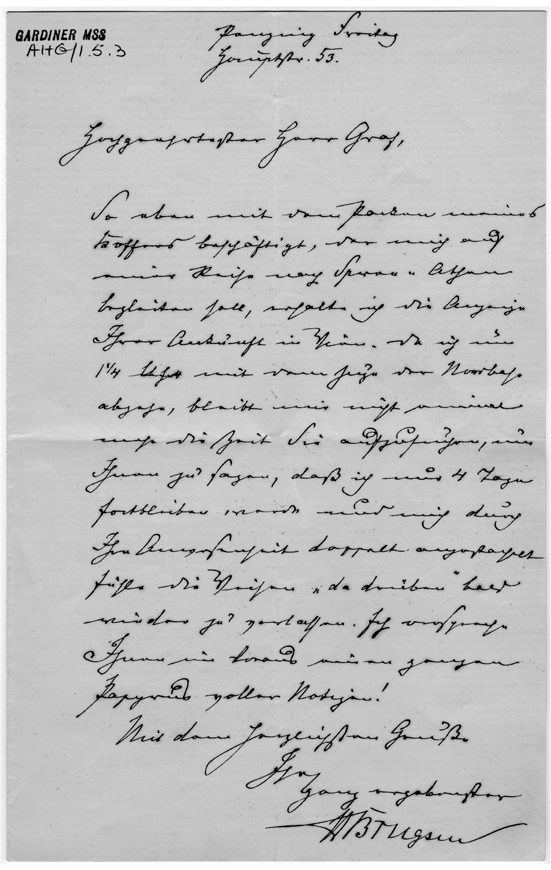 GARDINER MSS
AHG/1.5.3
Penzing Freitag
Hauptstr. 53.
Hochgeehrtester Herr Graf,
So eben mit dem Packen meines
Koffers beschäftigt, der mich auf
meiner Reise nach Spree-Athen
begleiten soll, erhalte ich die Anzeige
Ihrer Ankunft in Wien. Da ich um
1¼ Uhr mit dem Zuge der Nordbahn
abgehe, bleibt mir nicht einmal
mehr die Zeit Sie aufzusuchen, um
Ihnen zu sagen, daß ich nur 4 Tage
fortbleiben werde und mich durch
Ihre Anwesenheit doppelt angestachelt
fühle die Weisen „da drüben" bald
wieder zu verlassen. Ich verspreche
Ihnen im Voraus einen ganzen
Papyrus voller Notizen!
Mit dem herzlichsten Gruße
Ihr
ganz ergebenster
HBrugsch